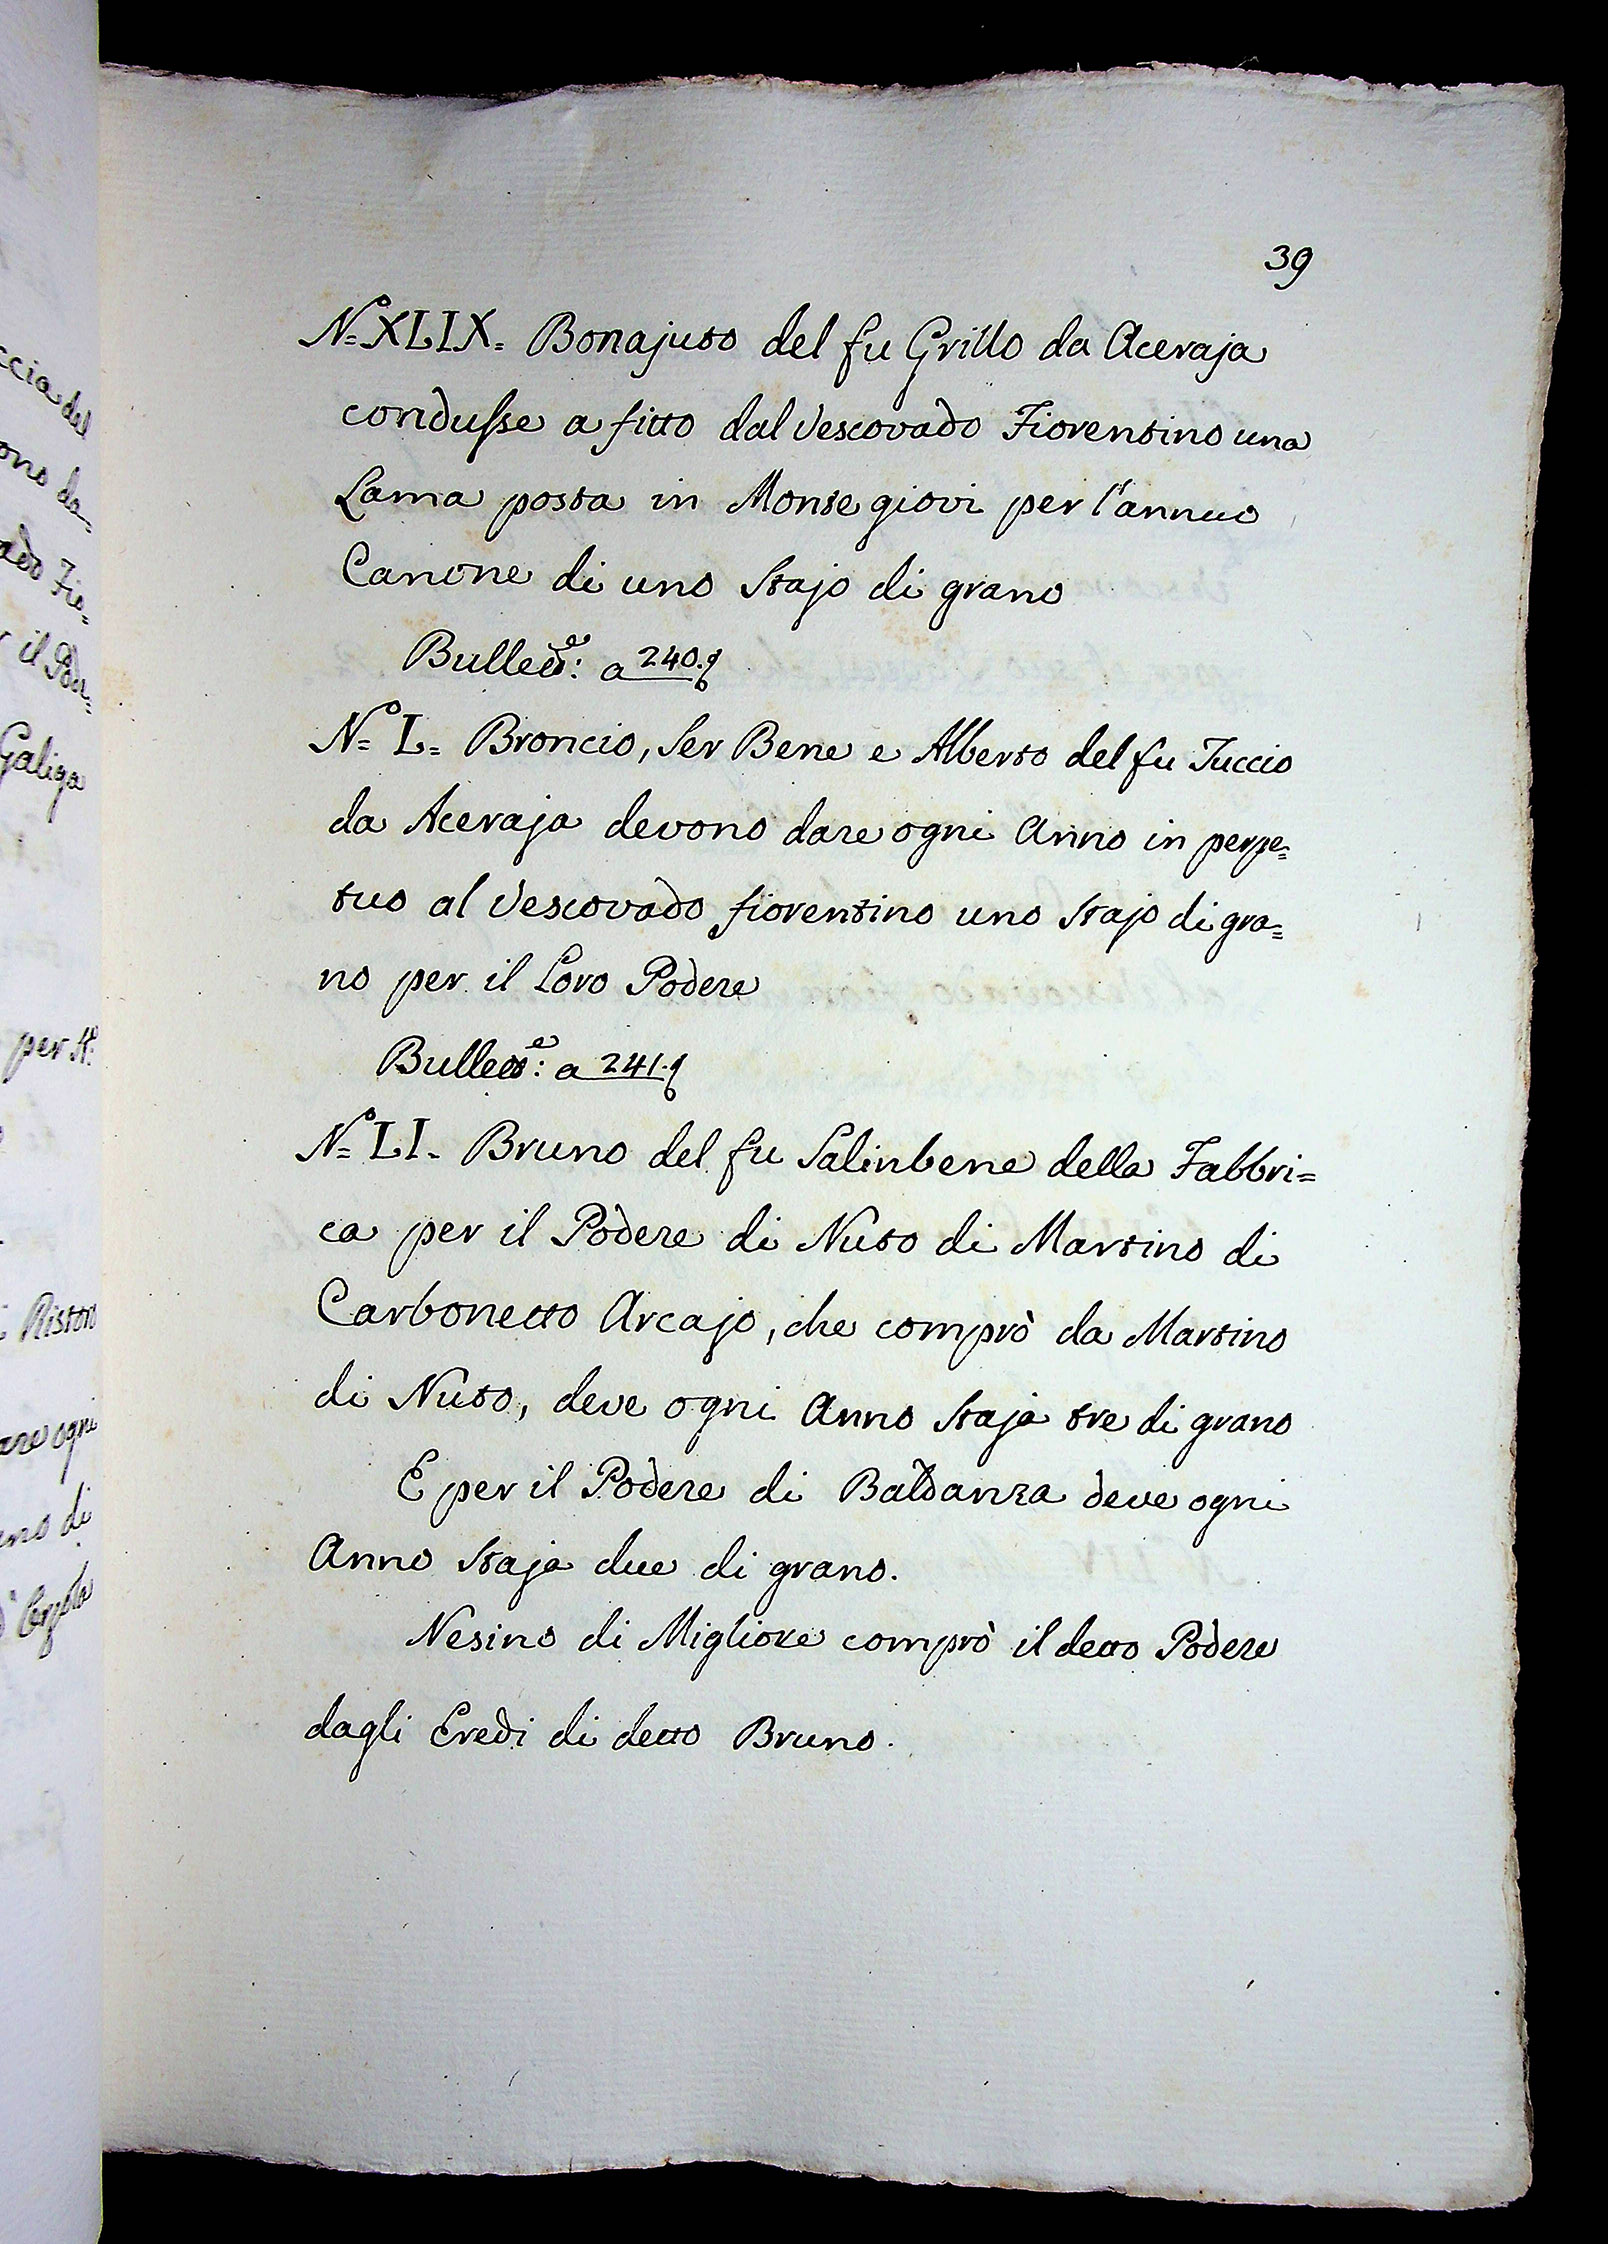 ccia del
ono da-
ado Fio-
il Pode-
Galiga
per st:
Ristoro
are ogni
ano di
39
N.o XLIX. Bonajuto del fu Grillo da Aceraja
condusse a fitto dal Vescovado Fiorentino una
Lama posta in Monte giovi per l'annuo
Canone di uno Stajo di grano
Bullett.e: a 240.
N.o L. Broncio, Ser Bene e Alberto del fu Tuccio
da Aceraja devono dare ogni Anno in perpe=
tuo al Vescovado fiorentino uno Stajo di gra=
no per il Loro Podere
Bullett.e: a 241.
N.o LI. Bruno del fu Salinbene della Fabbri=
ca per il Podere di Nuto di Martino di
Carbonetto Arcajo, che comprò da Martino
di Nuto, deve ogni Anno Staja tre di grano
E per il Podere di Baldanza deve ogni
Anno Staja due di grano.
Nesino di Migliore comprò il detto Podere
dagli Eredi di detto Bruno.